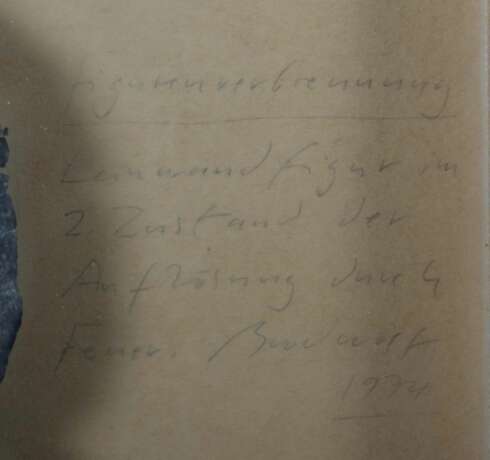 Figurenverbrennung
Leinwandfigur im
2. Zustand der
Auflösung durch
Feuer.